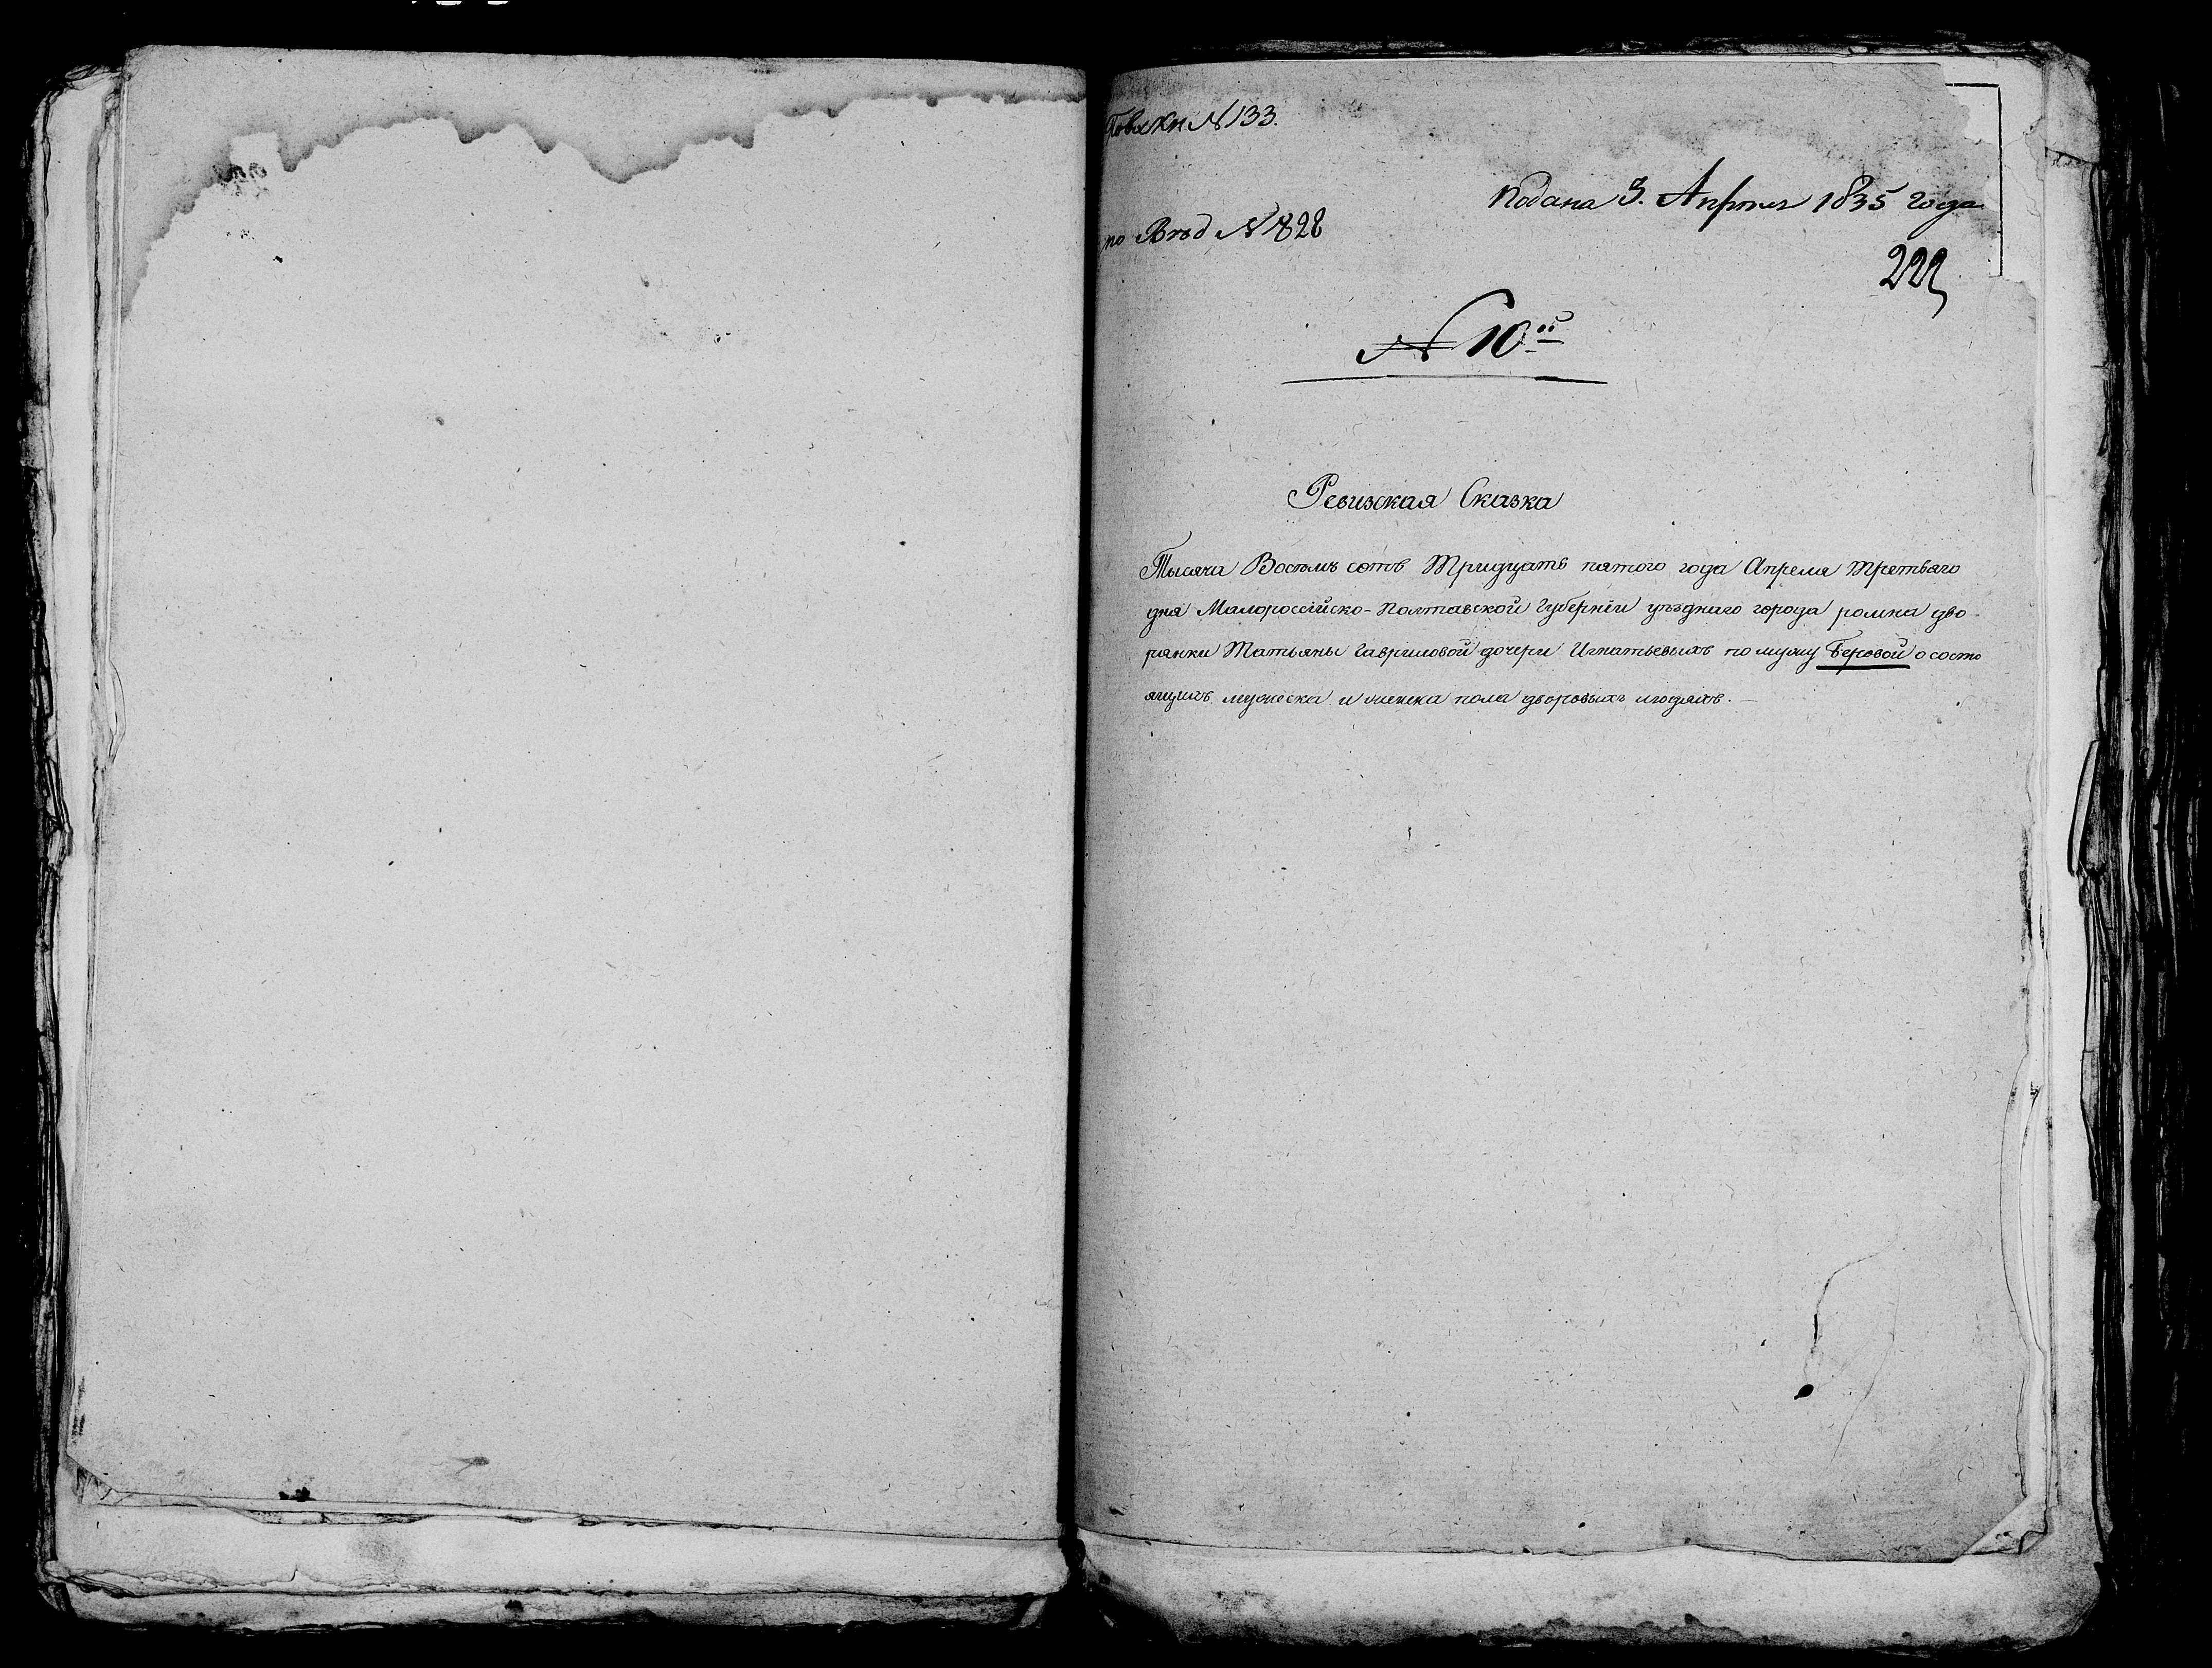 № 133.
Подана 3. Апреля 1835 года
по № 828
222
№ 10ый
Ревизская Сказка
Тысяча Восемь сотъ Тридцать пятого года Апреля Третьяго
дня Малороссійско-Полтавской Губерніи уезднаго города ромна дво
рянки Татьяны Гавриловой дочери Игнатьевыхъ по мужу Беровой о состо
ящихъ мужеска и женска пола дворовыхъ людяхъ. —